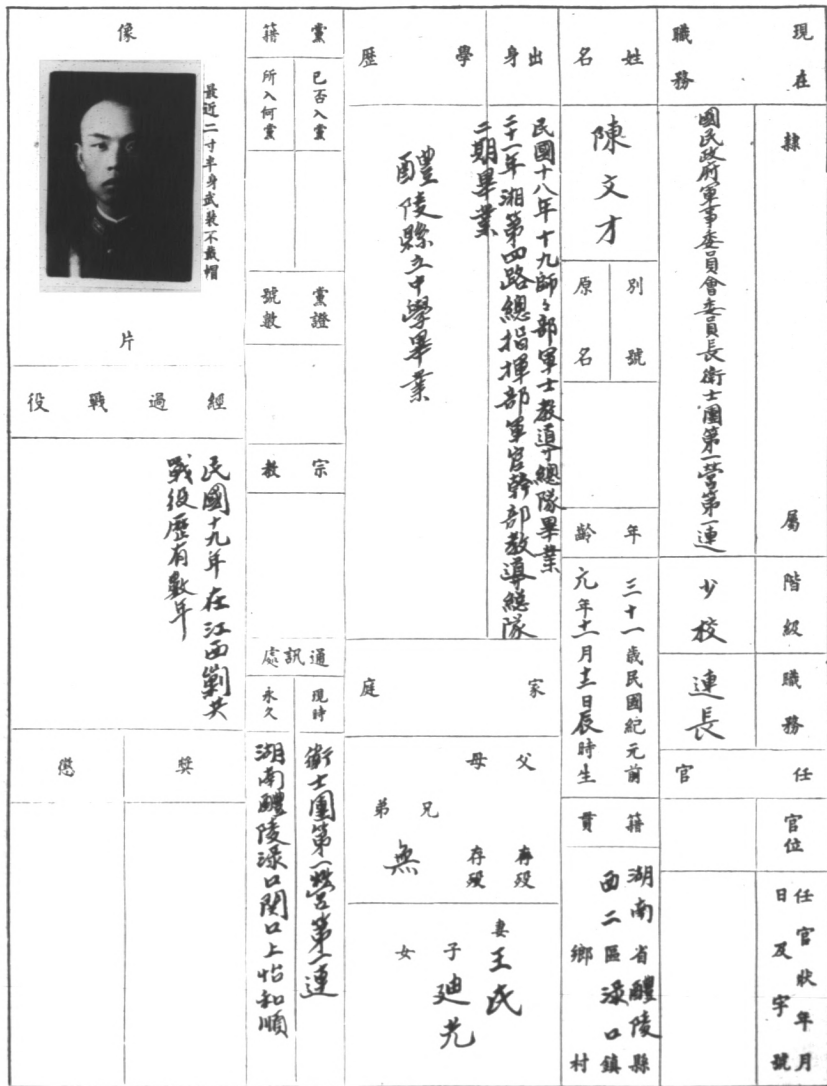 現在職務
隸屬
國民政府軍事委員會委員長衛士團第一營第一連
階級
少校
職務
連長
任官
官位
任官狀年月日及字號
姓名
陳文才
別號
原名
年齡
三十一歲民國紀元前
元年十一月十三日辰時生
籍貫
湖南省醴陵縣
西二區淥口鎮
鄉村
出身
民國十八年十九師々部軍士教導總隊畢業
二十一年湘第四路總指揮部軍官幹部教導總隊
二期畢業
學歷
醴陵縣立中學畢業
家庭
父存歿
母存歿
兄弟
無
妻王氏
子廸光
女
黨籍
已否入黨
所入何黨
黨證號數
宗教
通訊處
現時
衛士團第一營第一連
永久
湖南醴陵淥口関口上怡和順
像片
最近二寸半身武裝不戴帽
經過戰役
民國十九年在江西剿共
戰役歷有數年
獎
懲